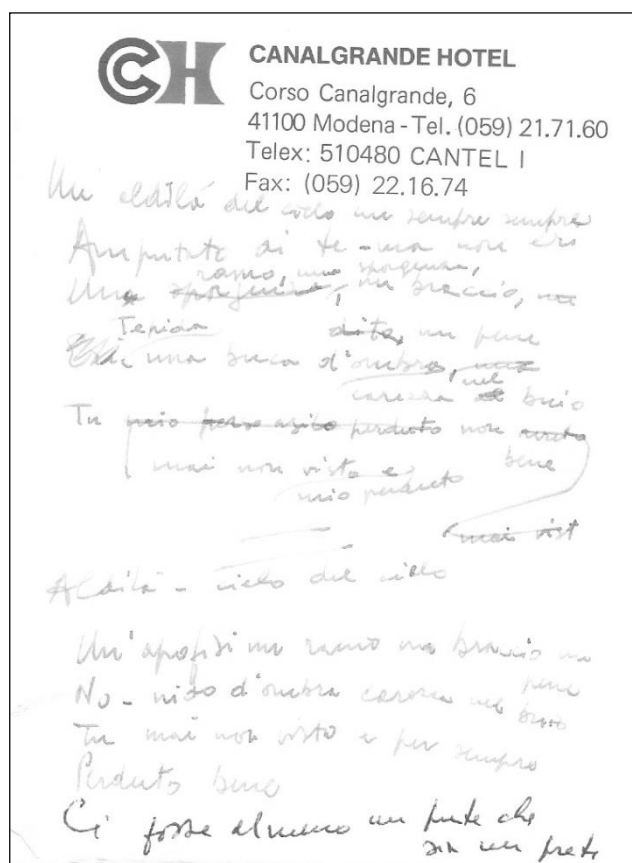 CH CANALGRANDE HOTEL
Corso Canalgrande, 6
41100 Modena - Tel. (059) 21.71.60
Telex: 510480 CANTEL I
Fax: (059) 22.16.74
Un aldilà del cielo un sempre sempre
Amputato di te - ma non eri
ramo, una sporgenza,
Un sporgenza, un braccio, un
Tepida dito, un pene
una buca d'ombra,
carezza nel buio
Tu mio perduto non
mai non visto e bene
mio perduto
mai vist
Aldilà - cielo del cielo
Un'apofisi un ramo un braccio un
pene
No - nido d'ombra carezza nel buio
Tu mai non visto e per sempre
Perduto bene
Ci fosse almeno un prete che
sia un prete